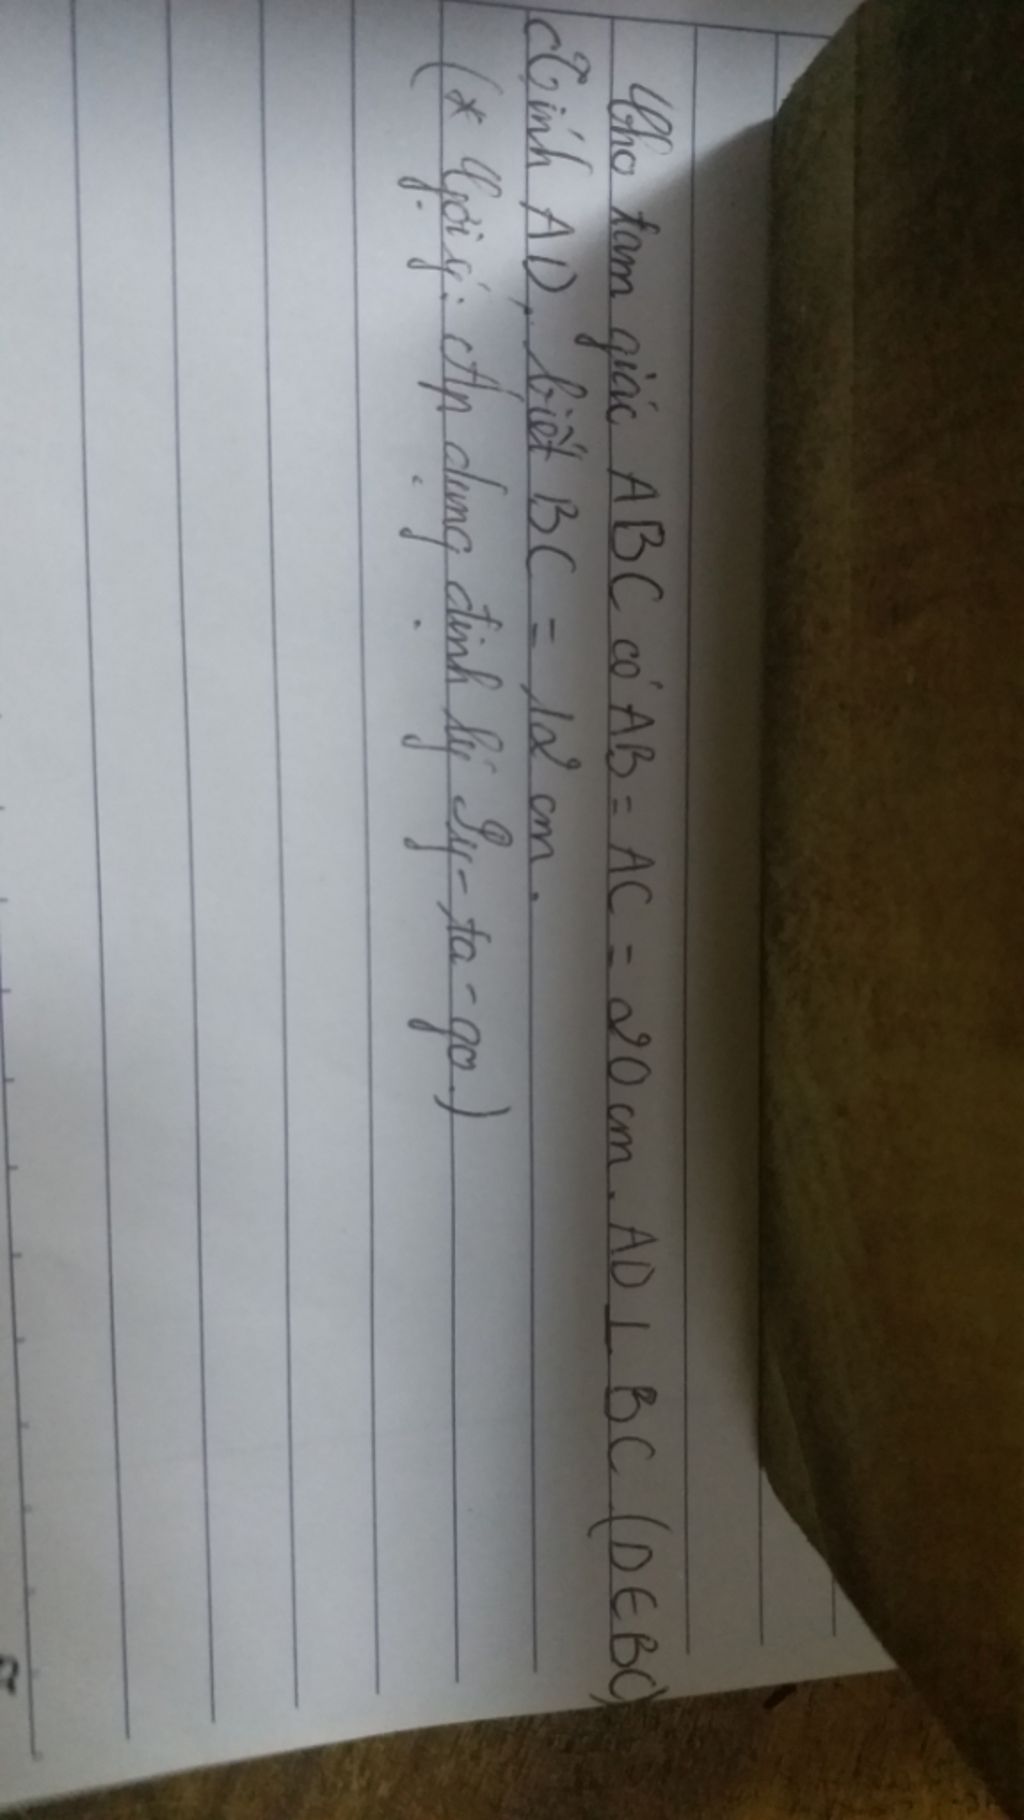 Cho tam giác ABC có AB = AC = 20 cm. AD ⊥ BC (D ∈ BC)
Tính AD, biết BC = 12 cm.
(* Gợi ý: Áp dụng định lý Py-ta-go.)